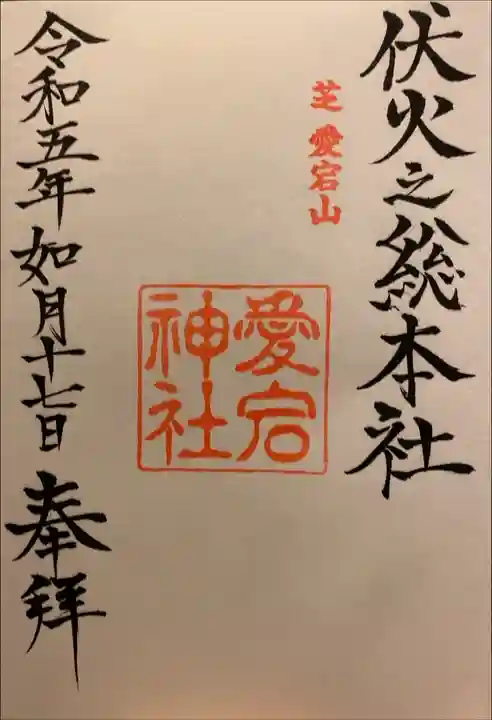 伏火之総本社
芝愛宕山
愛宕
神社
令和五年如月十七日奉拜